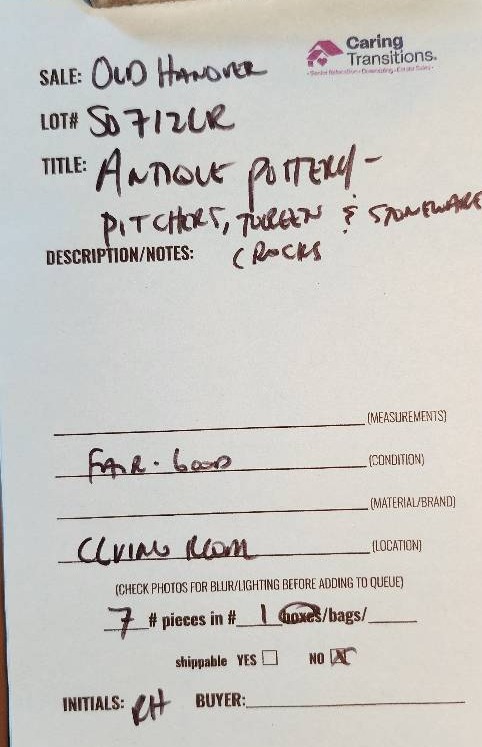 Caring
Transitions.
Senior Relocation • Downsizing • Estate Sales
SALE: OLD HANOVER
LOT# SD712LR
TITLE: ANTIQUE POTTERY-
PITCHERS, TUREEN & STONEWARE
DESCRIPTION/NOTES: CROCKS
(MEASUREMENTS)
FAIR - GOOD (CONDITION)
(MATERIAL/BRAND)
LIVING ROOM (LOCATION)
(CHECK PHOTOS FOR BLUR/LIGHTING BEFORE ADDING TO QUEUE)
7 # pieces in # 1 boxes/bags/
shippable YES NO X
INITIALS: RH BUYER: